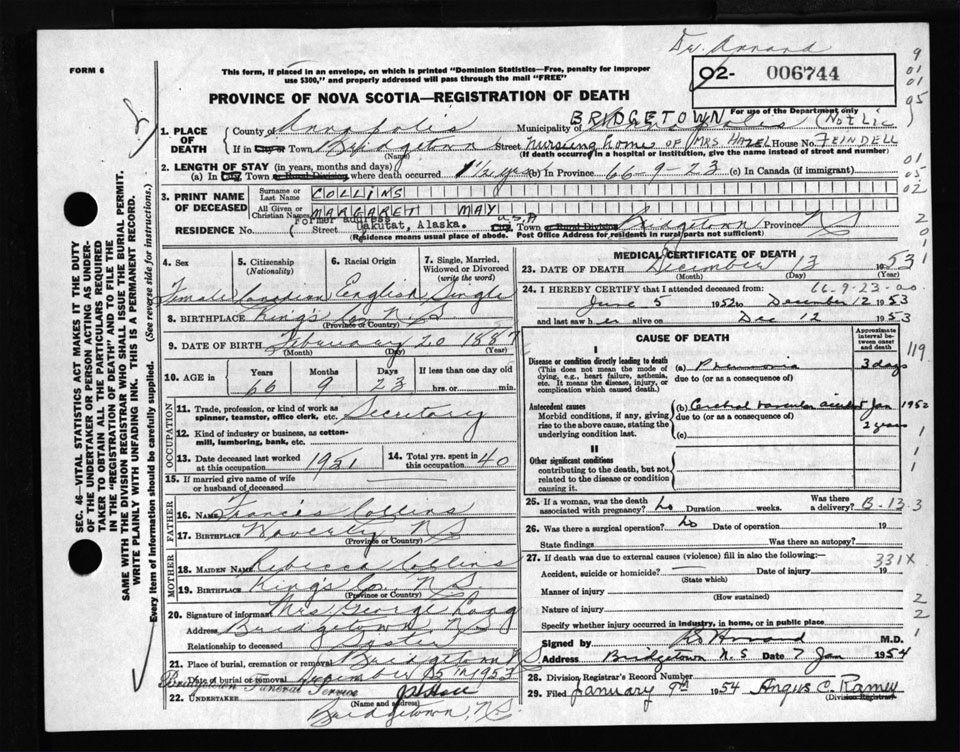 Dr. Annand
FORM 6
This form, if placed in an envelope, on which is printed "Dominion Statistics—Free, penalty for improper
use $300," and properly addressed will pass through the mail "FREE"
02- 006744
9
01
01
05
PROVINCE OF NOVA SCOTIA—REGISTRATION OF DEATH
For use of the Department only
BRIDGETOWN (Not Lic
1. PLACE OF DEATH County of Annapolis Municipality of Annapolis
If in City or Town Bridgetown (Name) Street Nursing home OF MRS HAZEL House No. FEINDELL
(If death occurred in a hospital or institution, give the name instead of street and number)
2. LENGTH OF STAY (in years, months and days)
(a) In City, Town or Rural Division where death occurred 1 1/2 yrs (b) In Province 66-9-23 (c) In Canada (if immigrant)
01
05
02
3. PRINT NAME OF DECEASED Surname or Last Name COLLINS
All Given or Christian Names MARGARET MAY
Former address U.S.A
RESIDENCE No. Street Yakutat, Alaska. City, Town or Rural Division Bridgetown Province NS
(Residence means usual place of abode. Post Office Address for residents in rural parts not sufficient)
2
0
1
4. Sex Female
5. Citizenship (Nationality) Canadian
6. Racial Origin English
7. Single, Married, Widowed or Divorced (write the word) Single
8. BIRTHPLACE King's Co. N.S
(Province or Country)
9. DATE OF BIRTH February 20 1887
(Month) (Day) (Year)
10. AGE in Years 66 Months 9 Days 23 If less than one day old
hrs. or min.
OCCUPATION
11. Trade, profession, or kind of work as spinner, teamster, office clerk, etc. Secretary
12. Kind of industry or business, as cotton-mill, lumbering, bank, etc.
13. Date deceased last worked at this occupation 1951
14. Total yrs. spent in this occupation 40
15. If married give name of wife or husband of deceased
FATHER
16. Name Francis Collins
17. Birthplace Waverley N.S
(Province or Country)
MOTHER
18. Maiden Name Rebecca Collins
19. Birthplace King's Co. N.S.
(Province or Country)
20. Signature of informant Mrs George Long
Address Bridgetown, N.S
Relationship to deceased Sister
21. Place of burial, cremation or removal Bridgetown N S
Date of burial or removal December 15th 1953
Bridgetown Funeral Service
22. UNDERTAKER
(Name and address)
Bridgetown, N.S.
MEDICAL CERTIFICATE OF DEATH
23. DATE OF DEATH December 13 1953
(Month) (Day)
66-9-23-20.
24. I HEREBY CERTIFY that I attended deceased from:
June 5 1952 to December 12 1953
and last saw her alive on Dec 12 1953
CAUSE OF DEATH
Approximate interval between onset and death
119
I
Disease or condition directly leading to death
(This does not mean the mode of dying, e.g., heart failure, asthenia, etc. It means the disease, injury, or complication which caused death.)
(a) Pneumonia 3 days
due to (or as a consequence of)
Antecedent causes
Morbid conditions, if any, giving rise to the above cause, stating the underlying condition last.
(b) Cerebral vascular accident Jan 1952
due to (or as a consequence of) 2 years
(c)
1
1
1
II
Other significant conditions
contributing to the death, but not related to the disease or condition causing it.
25. If a woman, was the death associated with pregnancy? No Duration weeks. Was there a delivery? B-13 3
26. Was there a surgical operation? No Date of operation 19
State findings Was there an autopsy?
27. If death was due to external causes (violence) fill in also the following:—
331X
Accident, suicide or homicide? Date of injury 19
(State which)
Manner of injury
(How sustained)
2
Nature of injury
2
Specify whether injury occurred in industry, in home, or in public place
1
Signed by M.D.
Address Bridgetown N.S Date 7 Jan 1954
28. Division Registrar's Record Number
29. Filed January 9th 1954 Angus C. Ramey
(Division Registrar)
SEC. 46—VITAL STATISTICS ACT MAKES IT THE DUTY
OF THE UNDERTAKER OR PERSON ACTING AS UNDER-
TAKER TO OBTAIN ALL THE PARTICULARS REQUIRED
IN THE "REGISTRATION OF DEATH" AND TO FILE THE
SAME WITH THE DIVISION REGISTRAR WHO SHALL ISSUE THE BURIAL PERMIT.
WRITE PLAINLY WITH UNFADING INK. THIS IS A PERMANENT RECORD.
Every item of Information should be carefully supplied. (See reverse side for instructions.)